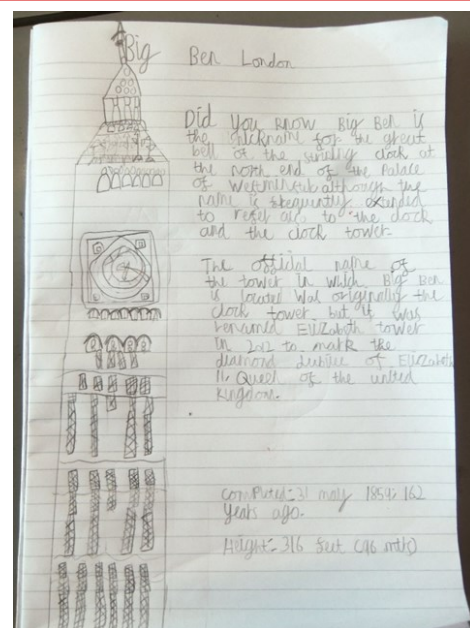 Big Ben London
Did you know Big Ben is
the nickname for the great
bell of the striking clock at
the north end of the Palace
of Westminster although the
name is frequently extended
to refer also to the clock
and the clock tower.
The official name of
the tower in which Big Ben
is located was originally the
clock tower, but it was
renamed Elizabeth tower
in 2012 to mark the
diamond jubilee of Elizabeth
II, Queen of the united
kingdom.
completed:- 31 may 1859; 162
years ago.
Height:- 316 feet (96 mtrs)